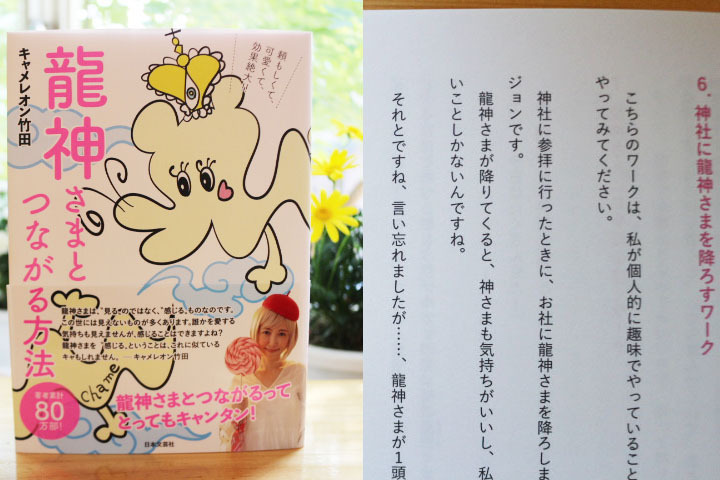 頼もしくて、
可愛くて、
効果絶大!
龍神
さまと
つながる方法
キャメレオン竹田
龍神さまは、“見る”のではなく、“感じる”ものなのです。
この世には見えないものが多くあります。誰かを愛する
気持ちも見えませんが、感じることはできますよね?
龍神さまを“感じる”ということは、これに似ている
キャもしれません。──キャメレオン竹田
chame
著者累計
80
万部!
龍神さまとつながるって
とってもキャンタン!
日本文芸社
6. 神社に龍神さまを降ろすワーク
こちらのワークは、私が個人的に趣味でやっていること
やってみてください。
神社に参拝に行ったときに、お社に龍神さまを降ろしま
ジョンです。
龍神さまが降りてくると、神さまも気持ちがいいし、私
いことしかないんですね。
それとですね、言い忘れましたが……、龍神さまが1頭